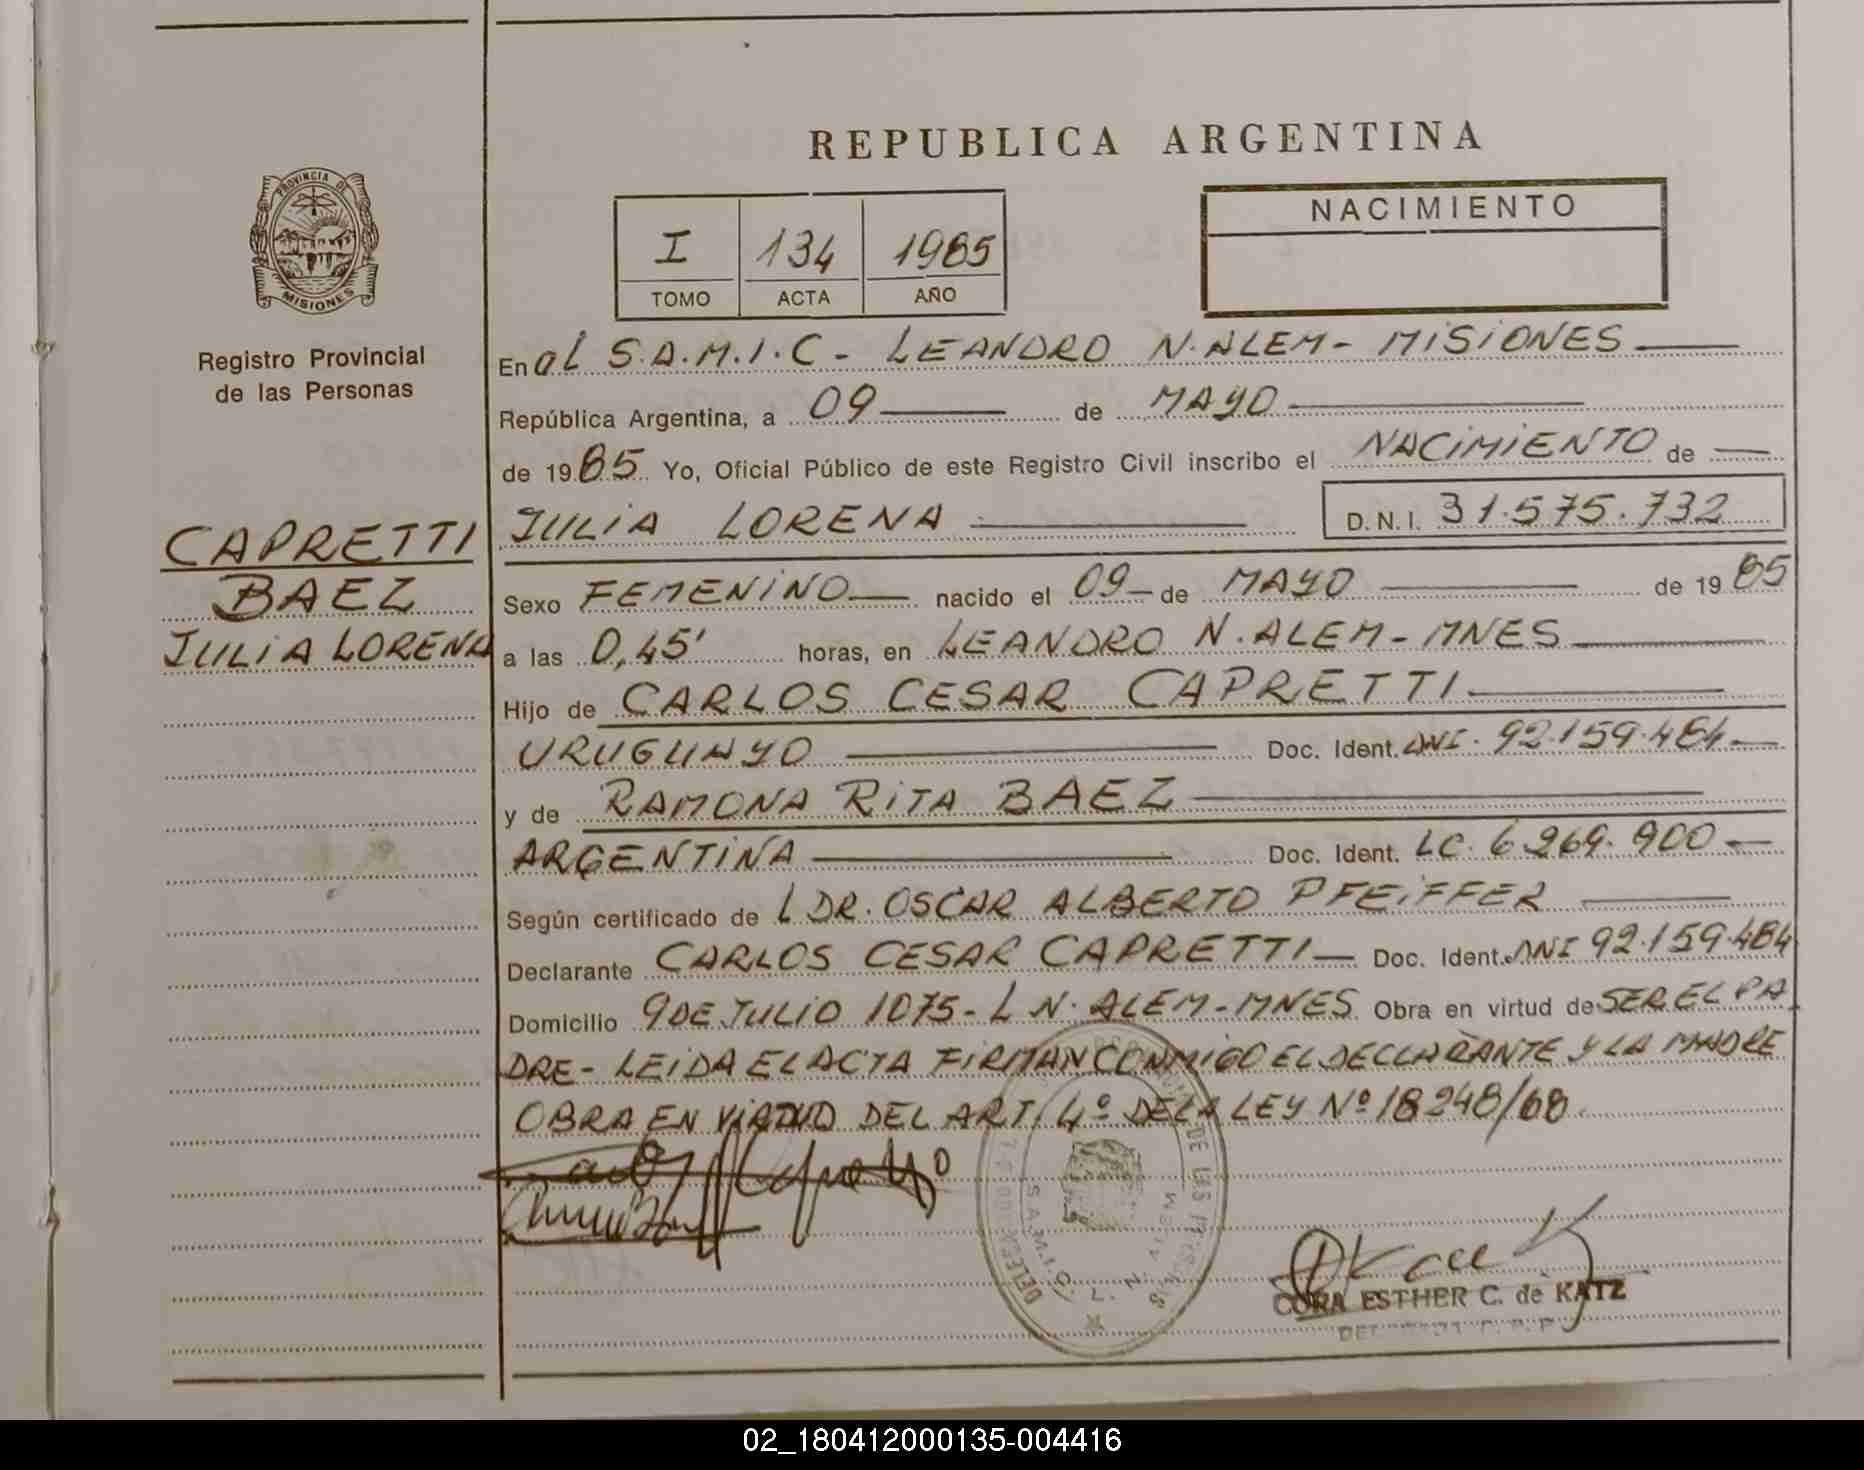 REPUBLICA ARGENTINA
PROVINCIA DE
MISIONES
Registro Provincial
de las Personas
CAPRETTI
BAEZ
JULIA LORENA
I 134 1985
TOMO ACTA AÑO
NACIMIENTO
En al S.A.M.I.C - LEANDRO N. ALEM - MISIONES
República Argentina, a 09 de MAYO
de 1985 Yo, Oficial Público de este Registro Civil inscribo el NACIMIENTO de
JULIA LORENA D.N.I. 31.575.732
Sexo FEMENINO nacido el 09 de MAYO de 1985
a las 0,45' horas, en LEANDRO N. ALEM - MNES
Hijo de CARLOS CESAR CAPRETTI
URUGUAYO Doc. Ident. DNI. 92.159.484
y de RAMONA RITA BAEZ
ARGENTINA Doc. Ident. LC. 6.269.900
Según certificado de L DR. OSCAR ALBERTO PFEIFFER
Declarante CARLOS CESAR CAPRETTI Doc. Ident. DNI 92.159.484
Domicilio 9 DE JULIO 1075 - L N. ALEM - MNES Obra en virtud de SER EL PA
DRE - LEIDA EL ACTA FIRMAN CONMIGO EL DECLARANTE Y LA MADRE
OBRA EN VIRTUD DEL ART. 4º DE LA LEY Nº 18248/68.
S.A.M.I.C. L. N. ALEM
CORA ESTHER C. de KATZ
02_180412000135-004416